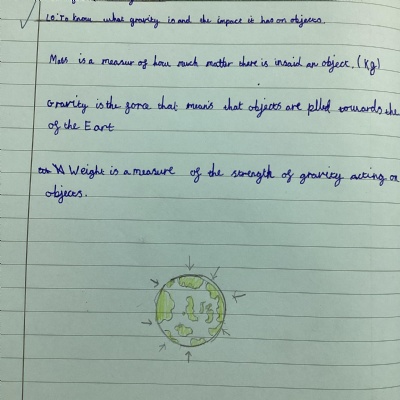 LO: To know what gravity is and the impact it has on objects.
Mass is a measur of how much matter there is insaid an object. (kg)
Gravity is the force that means that objects are plled towards the
of the Eart
Weight is a measure of the strength of gravity acting on
objects.